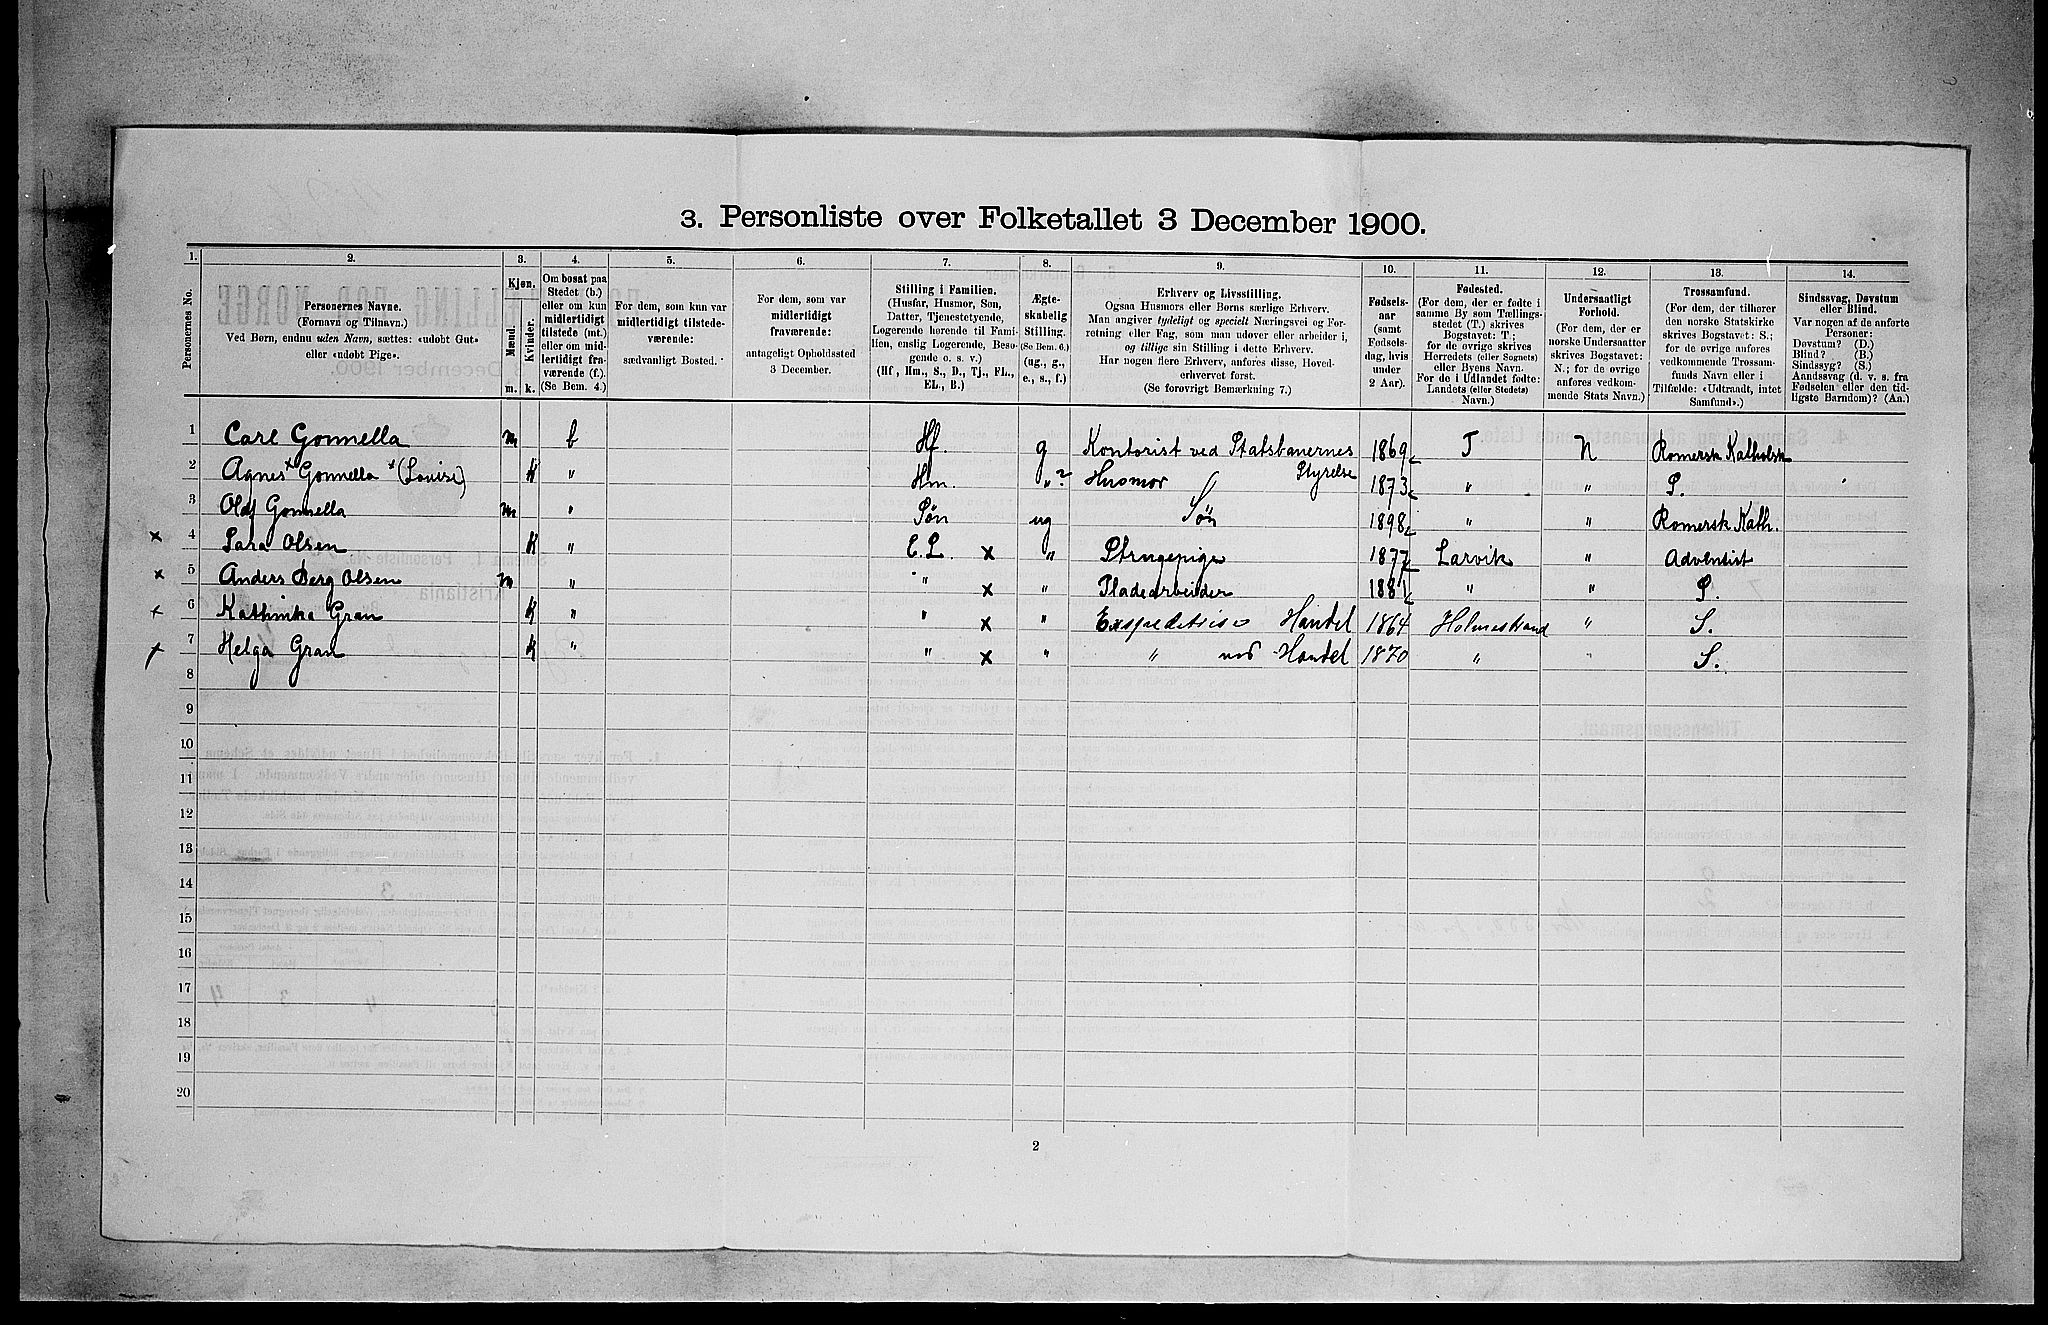 3. Personliste over Folketallet 3 December 1900.
1. 2. 3. 4. 5. 6. 7. 8. 9. 10. 11. 12. 13. 14.
Personernes No.
Personernes Navne.
(Fornavn og Tilnavn.)
Ved Børn, endnu uden Navn, sættes: «udobt Gut»
eller «udobt Pige».
Kjøn.
Mænd. Kvinder.
m. k.
Om bosat paa
Stedet (b.)
eller om kun
midlertidigt
tilstede (mt.)
eller om mid-
lertidigt fra-
værende (f.).
(Se Bem. 4.)
For dem, som kun var
midlertidigt tilstede-
værende:
sædvanligt Bosted.
For dem, som var
midlertidigt
fraværende:
antageligt Opholdssted
3 December.
Stilling i Familien.
(Husfar, Husmor, Søn,
Datter, Tjenestetyende,
Logerende hørende til Fami-
lien, enslig Logerende, Besø-
gende o. s. v.)
(Hf, Hm., S., D., Tj., FL.,
EL., B.)
Ægte-
skabelig
Stilling.
(Se Bem. 6.)
(ug., g.,
e., s., f.)
Erhverv og Livsstilling.
Ogsaa Husmors eller Børns særlige Erhverv.
Man angiver tydeligt og specielt Næringsvei og For-
retning eller Fag, som man udøver eller arbeider i,
og tillige sin Stilling i dette Erhverv.
Har nogen flere Erhverv, anføres disse, Hoved-
erhvervet først.
(Se forøvrigt Bemærkning 7.)
Fødsels-
aar
(samt
Fødsels-
dag, hvis
under
2 Aar).
Fødested.
(For dem, der er fødte i
samme By som Tællings-
stedet (T.) skrives
Bogstavet: T;
for de øvrige skrives
Herredets (eller Sognets)
eller Byens Navn.
For de i Udlandet fødte:
Landets (eller Stedets)
Navn.)
Undersaatligt
Forhold.
(For dem, der er
norske Undersaatter
skrives Bogstavet:
N.; for de øvrige
anføres vedkom-
mende Stats Navn.)
Trossamfund.
(For dem, der tilhører
den norske Statskirke
skrives Bogstavet: S.;
for de øvrige anføres
vedkommende Trossam-
funds Navn eller i
Tilfælde: «Udtraadt, intet
Samfund».)
Sindssvag, Døvstum
eller Blind.
Var nogen af de anførte
Personer:
Døvstum? (D.)
Blind? (B.)
Sindssyg? (S.)
Aandssvag (d. v. s. fra
Fødselen eller den tid-
ligste Barndom)? (Aa.)
1 Carl Gonnella m b Hf. g Kontorist ved Statsbanernes Styrelse 1869 T N Romersk Katholsk
2 Agnes Gonnella (Louise) K " Hm. "? Husmor 1873 " " S.
3 Olaf Gonnella m " Søn ug Søn 1898 " " Romersk Kath.
x 4 Sara Olsen K " E. L. x " Strygepige 1877 Larvik " Adventist
x 5 Anders Berg Olsen m " " x " Pladearbeider 1881 " " S.
x 6 Kathinka Gran K " " x " Handel 1864 Holmestrand " S.
x 7 Helga Gran K " " x " " ved Handel 1870 " " S.
8
9
10
11
12
13
14
15
16
17
18
19
20
2